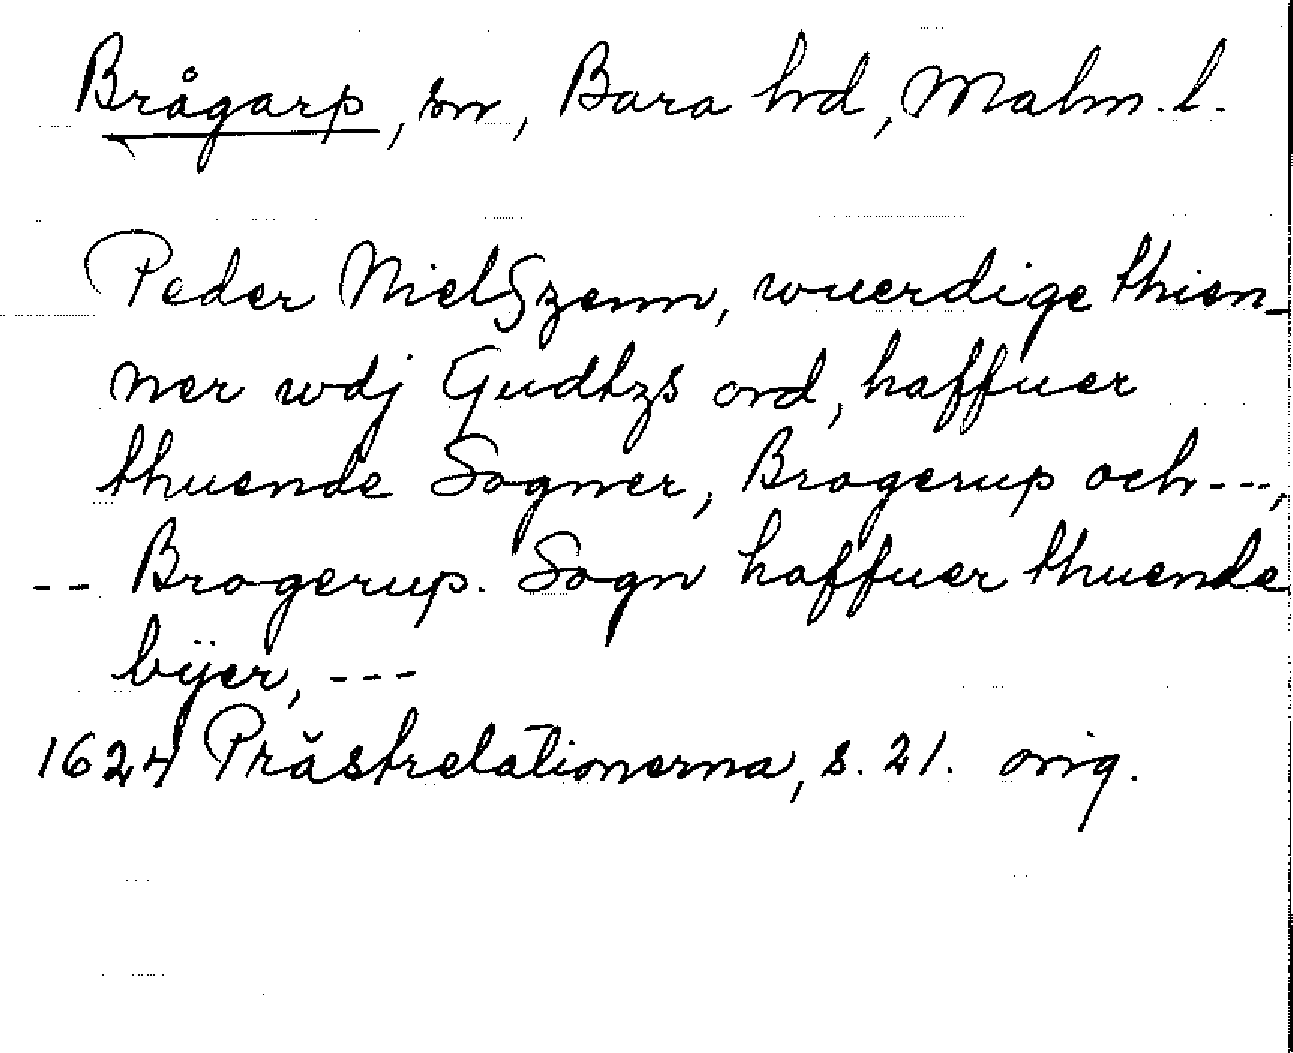 Brågarp, sn, Bara hd, Malm. l.
Peder Nielßzenn, wuerdige thien-
ner wdj Gudtzs ord, haffuer
thuende Sogner, Brogerup och ---,
-- Brogerup. Sogn haffuer thuende
bÿer, ---
1624 Prästrelationerna, s. 21. orig.